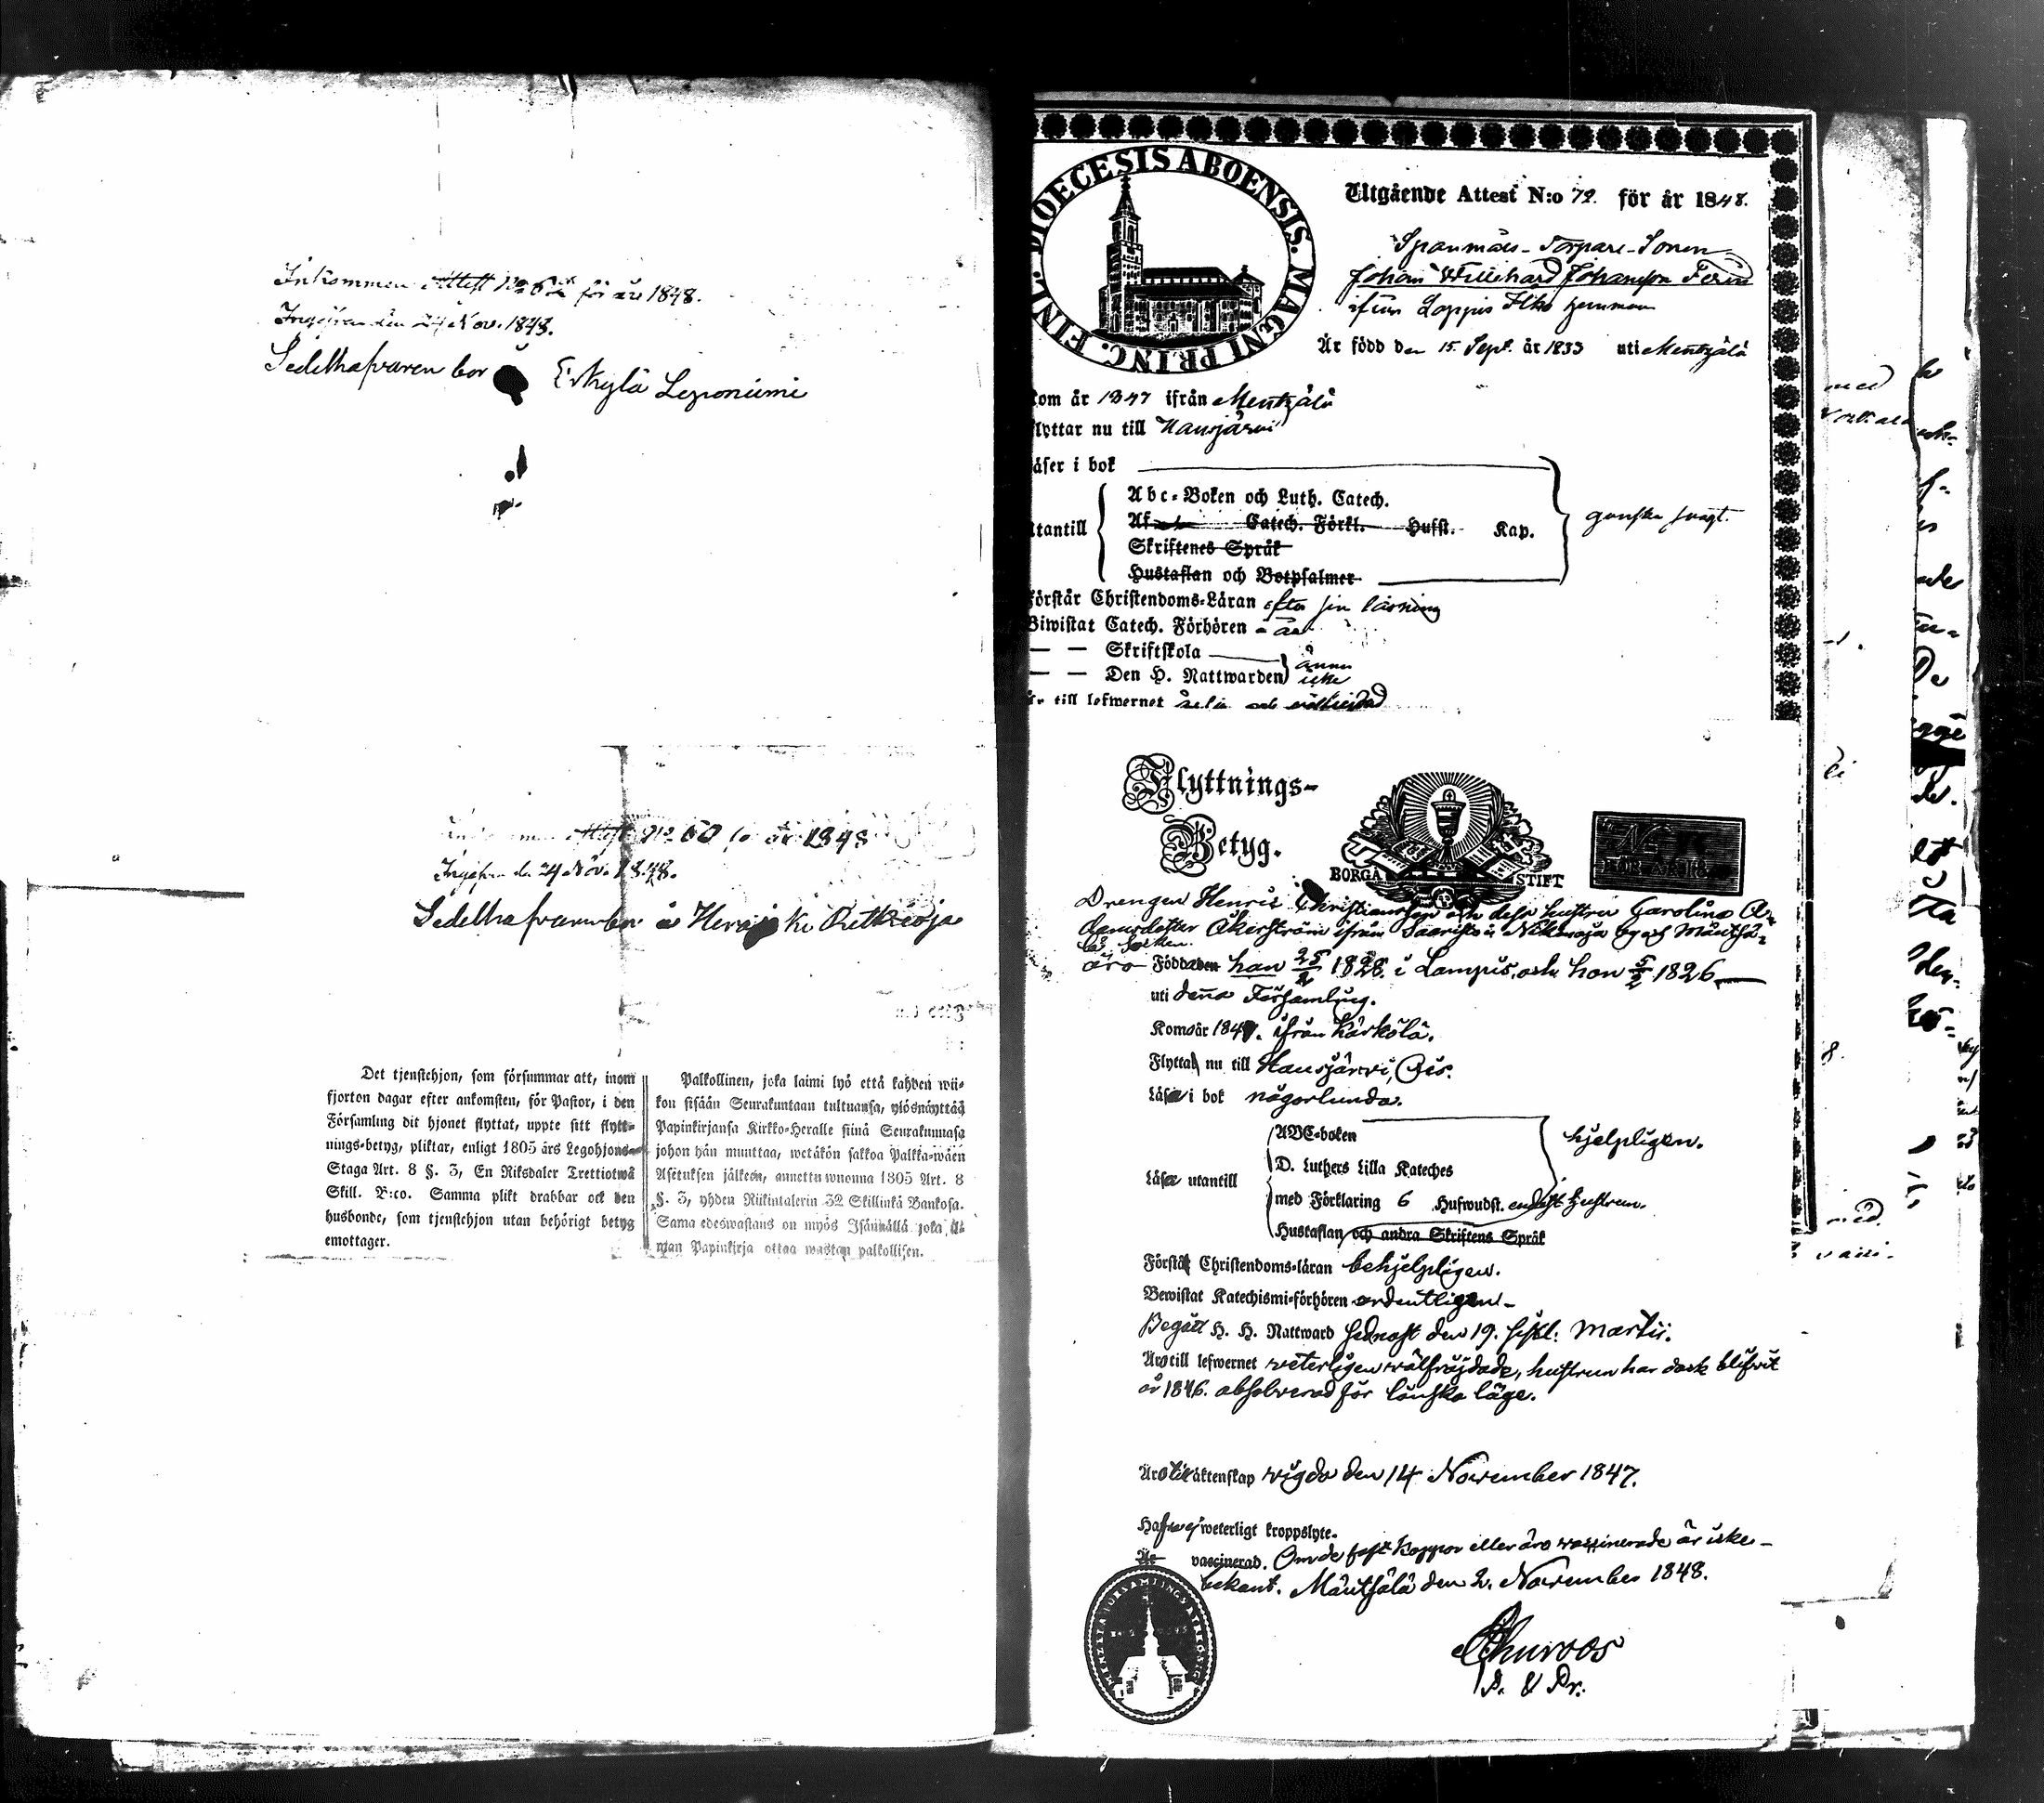 Inkommen Attest No 6 för år 1848.
Ingifven den 24 Nov. 1848.
Sedelhafvaren bor Erkylä Leponiemi
Attest No 60 för år 1848
Ingifven den 24 Nov. 1848.
Sedelhafvaren bor å Herajoki Retkioja
Det tjenstehjon, som försummar att, inom
fjorton dagar efter ankomsten, för Pastor, i den
Församling dit hjonet flyttat, uppte sitt flytt-
nings-betyg, pliktar, enligt 1805 års Legohjons-
Staga Art. 8 §. 3, En Riksdaler Trettiotwå
Skill. B:co. Samma plikt drabbar ock den
husbonde, som tjenstehjon utan behörigt betyg
emottager.
Palkollinen, joka laimi lyö että kahden wii-
kon sisään Seurakuntaan tultuansa, ylösnäyttää
Papinkirjansa Kirkko-Heralle siinä Seurakunnasa
johon hän muuttaa, wetäkön sakkoa Palkka-wäen
Asetuksen jälkeen, annettu wuonna 1805 Art. 8
§. 3, yhden Riikintalerin 32 Skillinkä Bankosa.
Sama edeswastaus on myös Isännällä joka il-
man Papinkirja ottaa wastan palkollisen.
DIOECESIS ABOENSIS. MAGNI PRINC. FINL.
Utgående Attest N:o 72. för år 1848.
Spanmåls-Torpare-Sonen
Johan Willehard Johansson
ifrån Loppis
Är född den 15. Sept. år 1833 uti Mentzälä
kom år 1847 ifrån Mentzälä
flyttar nu till Hausjärvi
läser i bok
Utantill
Abc-Boken och Luth. Catech.
Af Catech. Förkl. Hufst. Kap.
Skriftenes Språk
Hustaflan och Botpsalmer
ganska svagt.
Förstår Christendoms-Läran efter sin läsning
Biwistat Catech. Förhören
— — Skriftskola
— — Den H. Nattwarden
ännu
icke
Är till lefwernet
Flyttnings-
Betyg.
BORGÅ STIFT
No
FÖR ÅR 18
Drengen Henric Christiansson och dess hustru Carolina A-
damsdotter Åkerström ifrån Saaristo i Nikinoja by och Mäntsä-
lä Socken.
äro Födda han 25/2 1828. i Lampis, och hon 5/2 1826
uti denna Församling.
Kom år 1847. ifrån Kärkölä.
Flytta nu till Hausjärvi,
Läsa i bok någorlunda.
Läsa utantill
ABC-boken
D. Luthers Lilla Kateches
med Förklaring 6 Hufwudst. endast hustrun.
Hustaflan och andra Skriftens Språk
hjelpligen.
Förstå Christendoms-läran behjelpligen.
Bewistat Katechismi-förhören ordentligen
Begått H. H. Nattward sednast den 19. sistl. Martii.
Äro till lefwernet veterligen wälfräjdade, hustrun har dock blifvit
år 1846. absolverad för lönska läge.
Äro till äktenskap wigda den 14 November 1847.
Hafva ej weterligt kroppslyte.
Är vaccinerad. Om de haft koppor eller äro vaccinerade är icke
bekant. Mäntsälä den 2. November 1848.